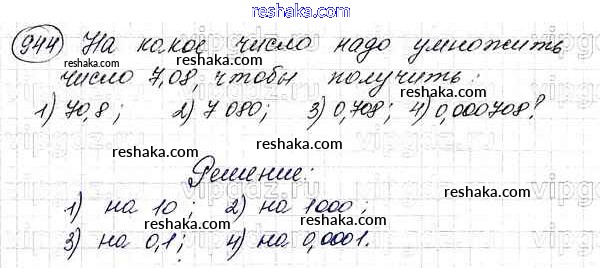 reshaka.com
944 На какое число надо умножить
число 7,08, чтобы получить:
1) 70,8; 2) 7 080; 3) 0,708; 4) 0,000708?
reshaka.com reshaka.com reshaka.com
reshaka.com
Решение:
reshaka.com
1) на 10; 2) на 1000;
reshaka.com
3) на 0,1; 4) на 0,0001.
reshaka.com reshaka.com